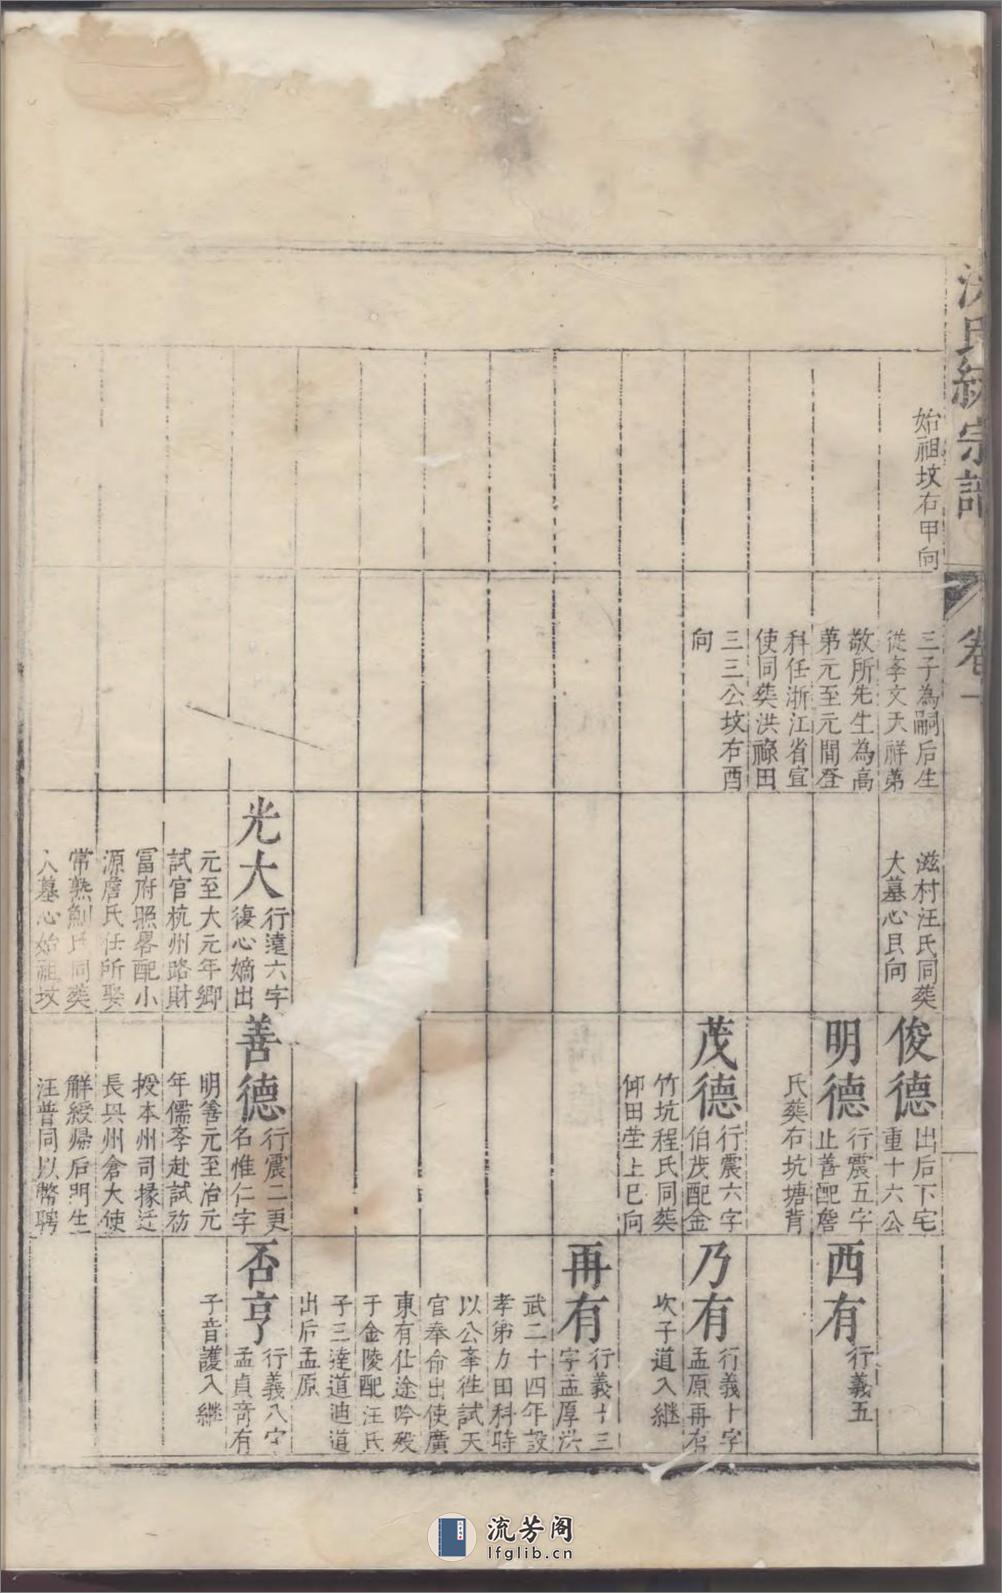 洪氏統宗譜
卷一
始祖坟右甲向
三子為嗣后生
從李文天祥弟
敬所先生為高
弟元至元間登
科任浙江省宣
使同葬洪祿田
三三公坟右酉
向
滋村汪氏同葬
大墓心艮向
光大
行遠六字
復心嫡出
元至大元年鄉
試官杭州路財
富府照畧配小
源詹氏任所娶
常熟鮒氏同葬
大墓心始祖坟
俊德
出后下宅
重十六公
明德
行震五字
止善配詹
氏葬右坑塘背
茂德
行震六字
伯茂配金
竹坑程氏同葬
仰田塋上巳向
善德
行震二更
名惟仁字
明善元至治元
年儒李赴試芴
授本州司掾迁
長興州倉大使
解綬歸后明生
汪普同以幣聘
西有
行義五
乃有
行義十字
孟原再有
次子道入継
再有
行義十三
字孟厚洪
武二十四年設
孝弟力田科時
以公李徃試天
官奉命出使廣
東有仕途吟殁
于金陵配汪氏
子三達道迪道
出后孟原
否亨
行義八字
孟貞育有
子音護入継
流芳阁
lfglib.cn